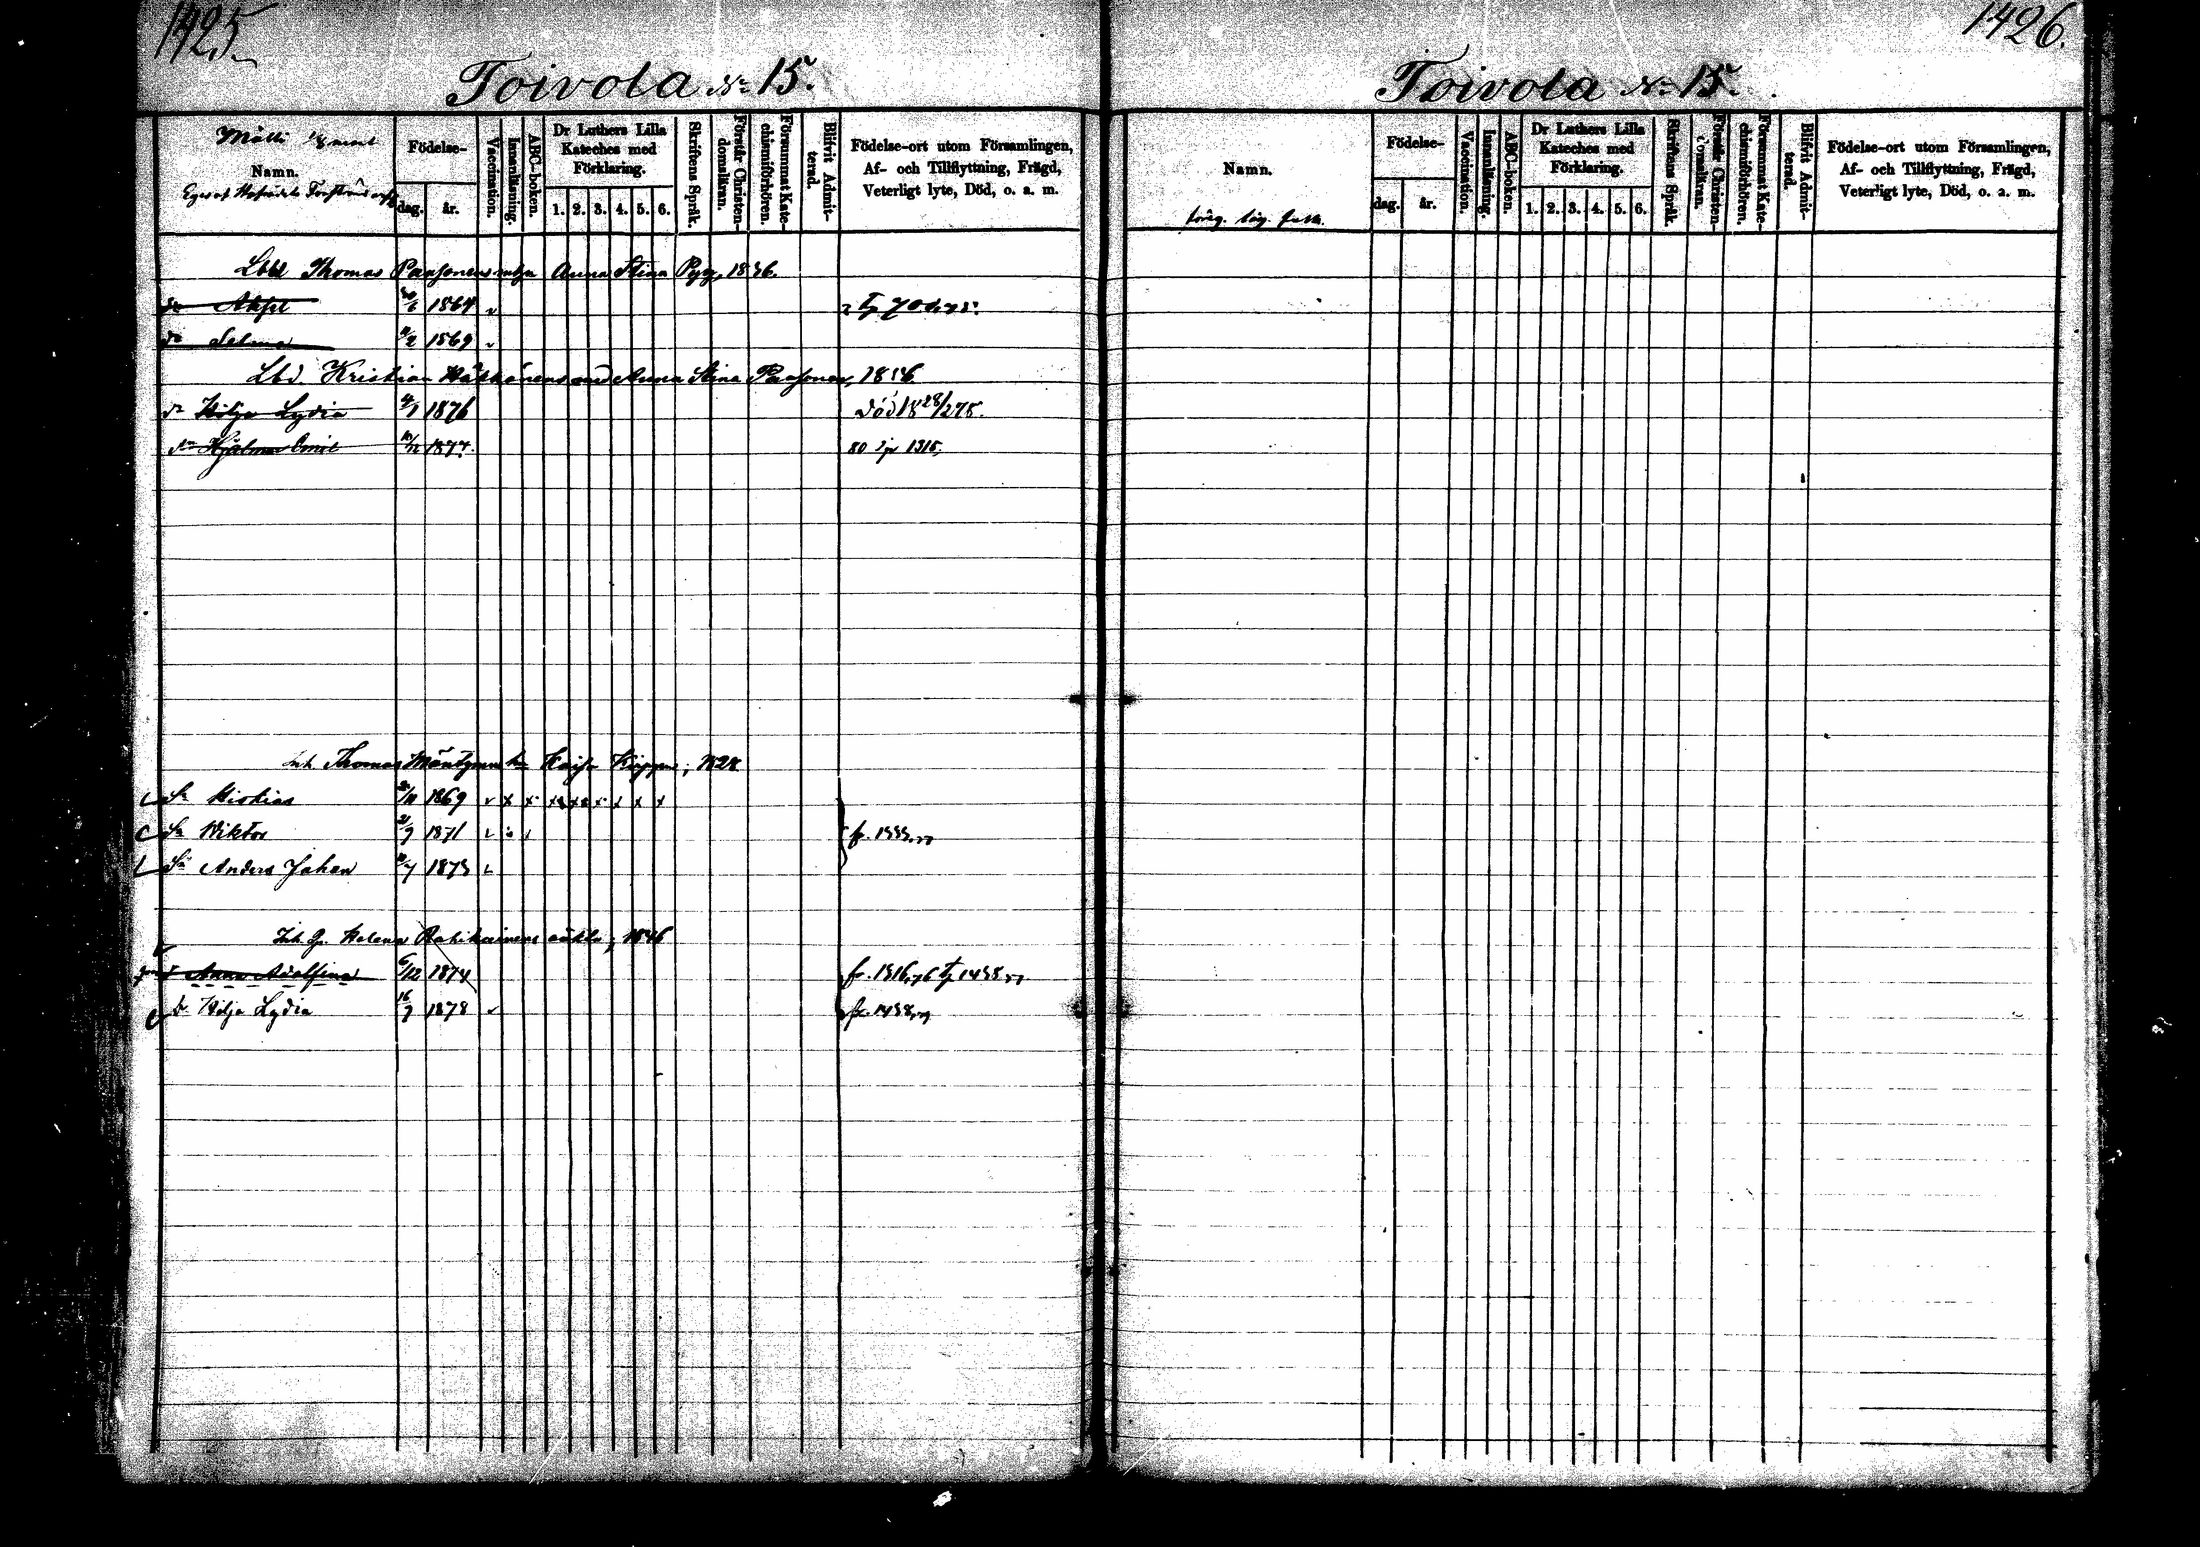 1425
Toivola No 15.
Mätti 1/8 mant
Namn.
Födelse-
dag. år.
Vaccination.
Innanläsning.
ABC-boken.
Dr Luthers Lilla
Kateches med
Förklaring.
1. 2. 3. 4. 5. 6.
Skriftens Språk.
Förstår Christen-
domsläran.
Försummat Kate-
chismiförhören.
Blifvit Admit-
terad.
Födelse-ort utom Församlingen,
Af- och Tillflyttning, Frägd,
Veterligt lyte, Död, o. a. m.
Lbd Thomas Paasonens Anna Stina Pyy, 1836.
dr 1864
dr Selma 2 1869
Lbd. Kristian Anna Stina Paasonen, 1856
dr Hilja Lydia 4/1 1876 död 18 28/2 78.
Hjalmar Emil 1877. 80 1315.
Inh. Thomas Mäntynen Kaisa ; 1828
Sn Hiskias 1869 x x x x x x x x
Sn Wiktor 1871
Sn Anders Johan 1873
Inh. Helena Rahikainens 1846
Anna Adolfina 6/12 1874 fr. 1316,76 1438
dr Hilja Lydia 16/9 1878 fr. 1438,79
1426.
Toivola No 15.
Namn.
Födelse-
dag. år.
Vaccination.
Innanläsning.
ABC-boken.
Dr Luthers Lilla
Kateches med
Förklaring.
1. 2. 3. 4. 5. 6.
Skriftens Språk.
Förstår Christen-
domsläran.
Försummat Kate-
chismiförhören.
Blifvit Admit-
terad.
Födelse-ort utom Församlingen,
Af- och Tillflyttning, Frägd,
Veterligt lyte, Död, o. a. m.